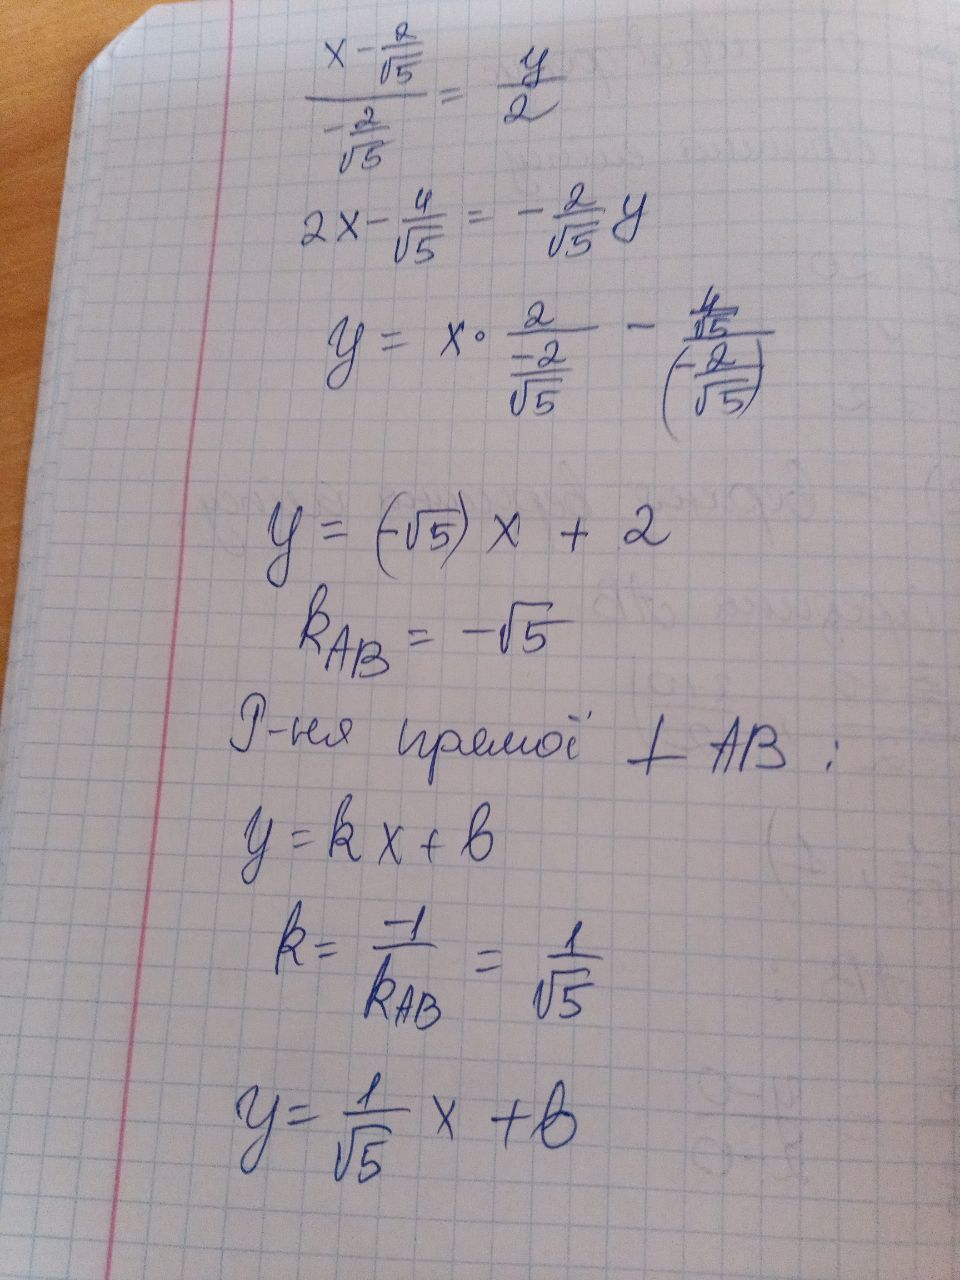 (x - 2/√5)/(-2/√5) = y/2
2x - 4/√5 = - 2/√5 y
y = x · 2/(-2/√5) - (4/√5)/(-2/√5)
y = (-√5) x + 2
k_AB = -√5
Р-ня прямої ⊥ AB :
y = kx + b
k = -1/k_AB = 1/√5
y = 1/√5 x + b